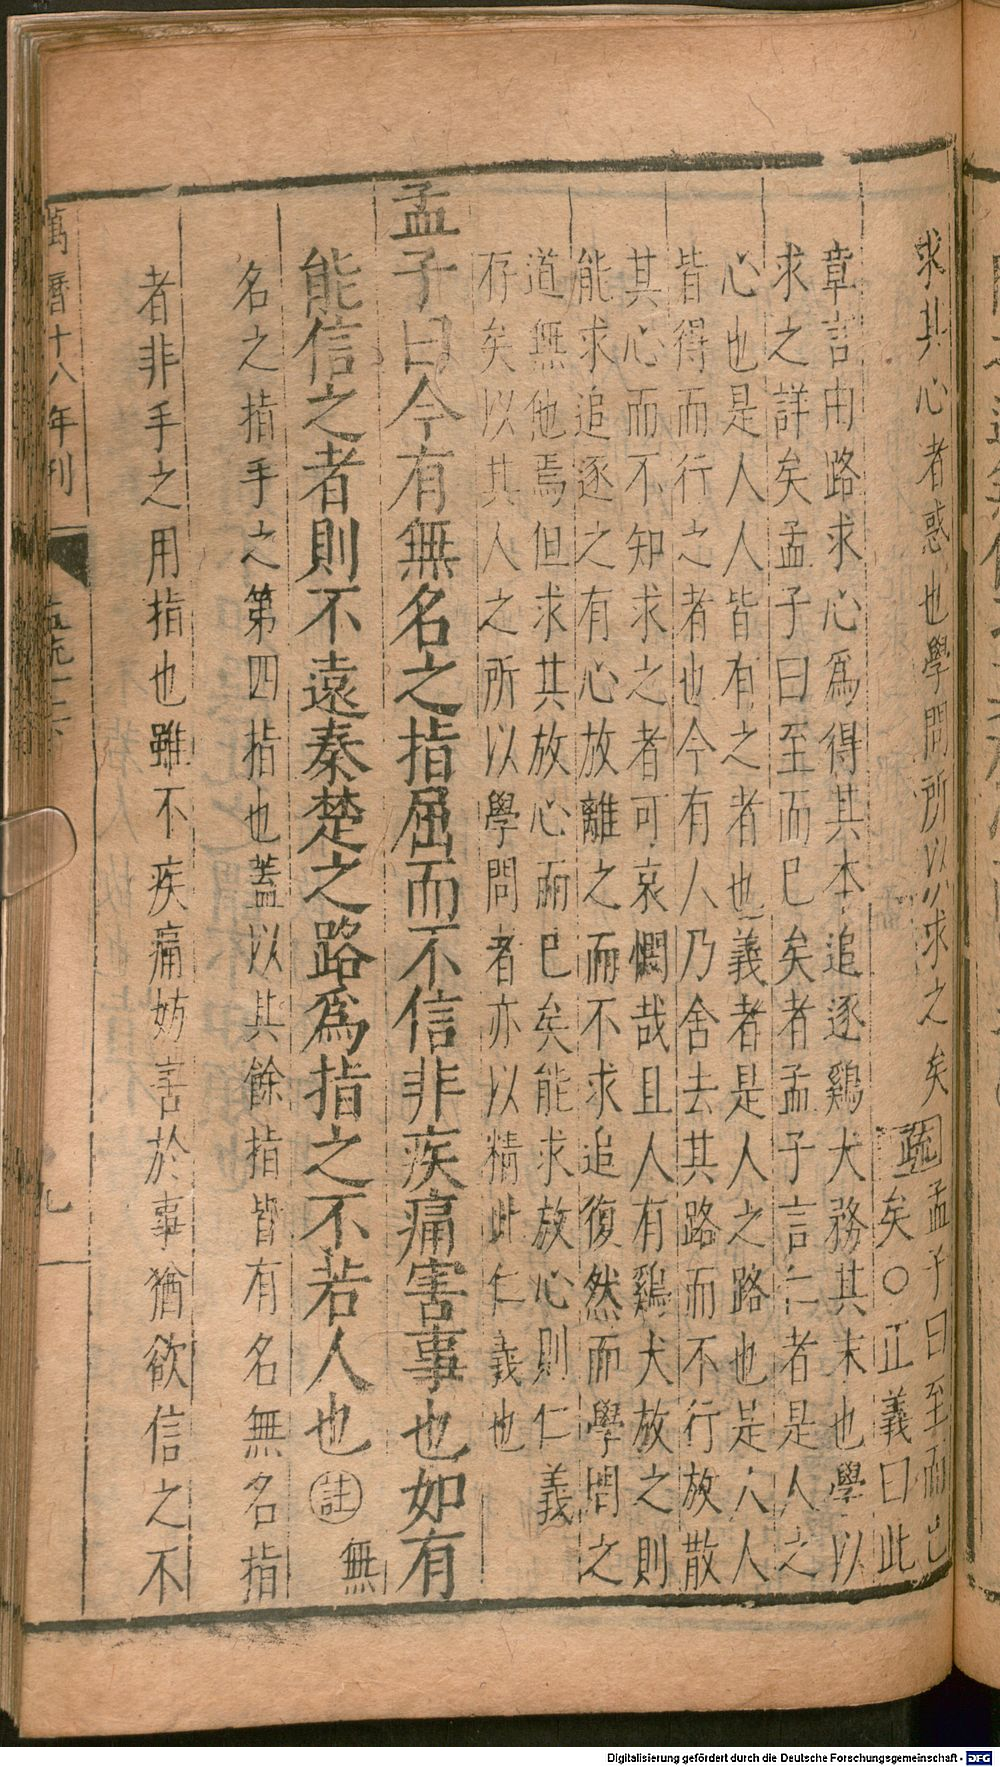 求其心者惑也學問所以求之矣疏孟子曰至而已
矣○正義曰此
章言由路求心為得其本追逐鷄犬務其末也學以
求之詳矣孟子曰至而已矣者孟子言仁者是人之
心也是人人皆有之者也義者是人之路也是人人
皆得而行之者也今有人乃舍去其路而不行放散
其心而不知求之者可哀憫哉且人有鷄犬放之則
能求追逐之有心放離之而不求追復然而學問之
道無他焉但求其放心而已矣能求放心則仁義
存矣以其人之所以學問者亦以精此仁義也
孟子曰今有無名之指屈而不信非疾痛害事也如有
能信之者則不遠秦楚之路爲指之不若人也註無
名之指手之第四指也蓋以其餘指皆有名無名指
者非手之用指也雖不疾痛妨害於事猶欲信之不
萬曆十八年刊
九
Digitalisierung gefördert durch die Deutsche Forschungsgemeinschaft - DFG